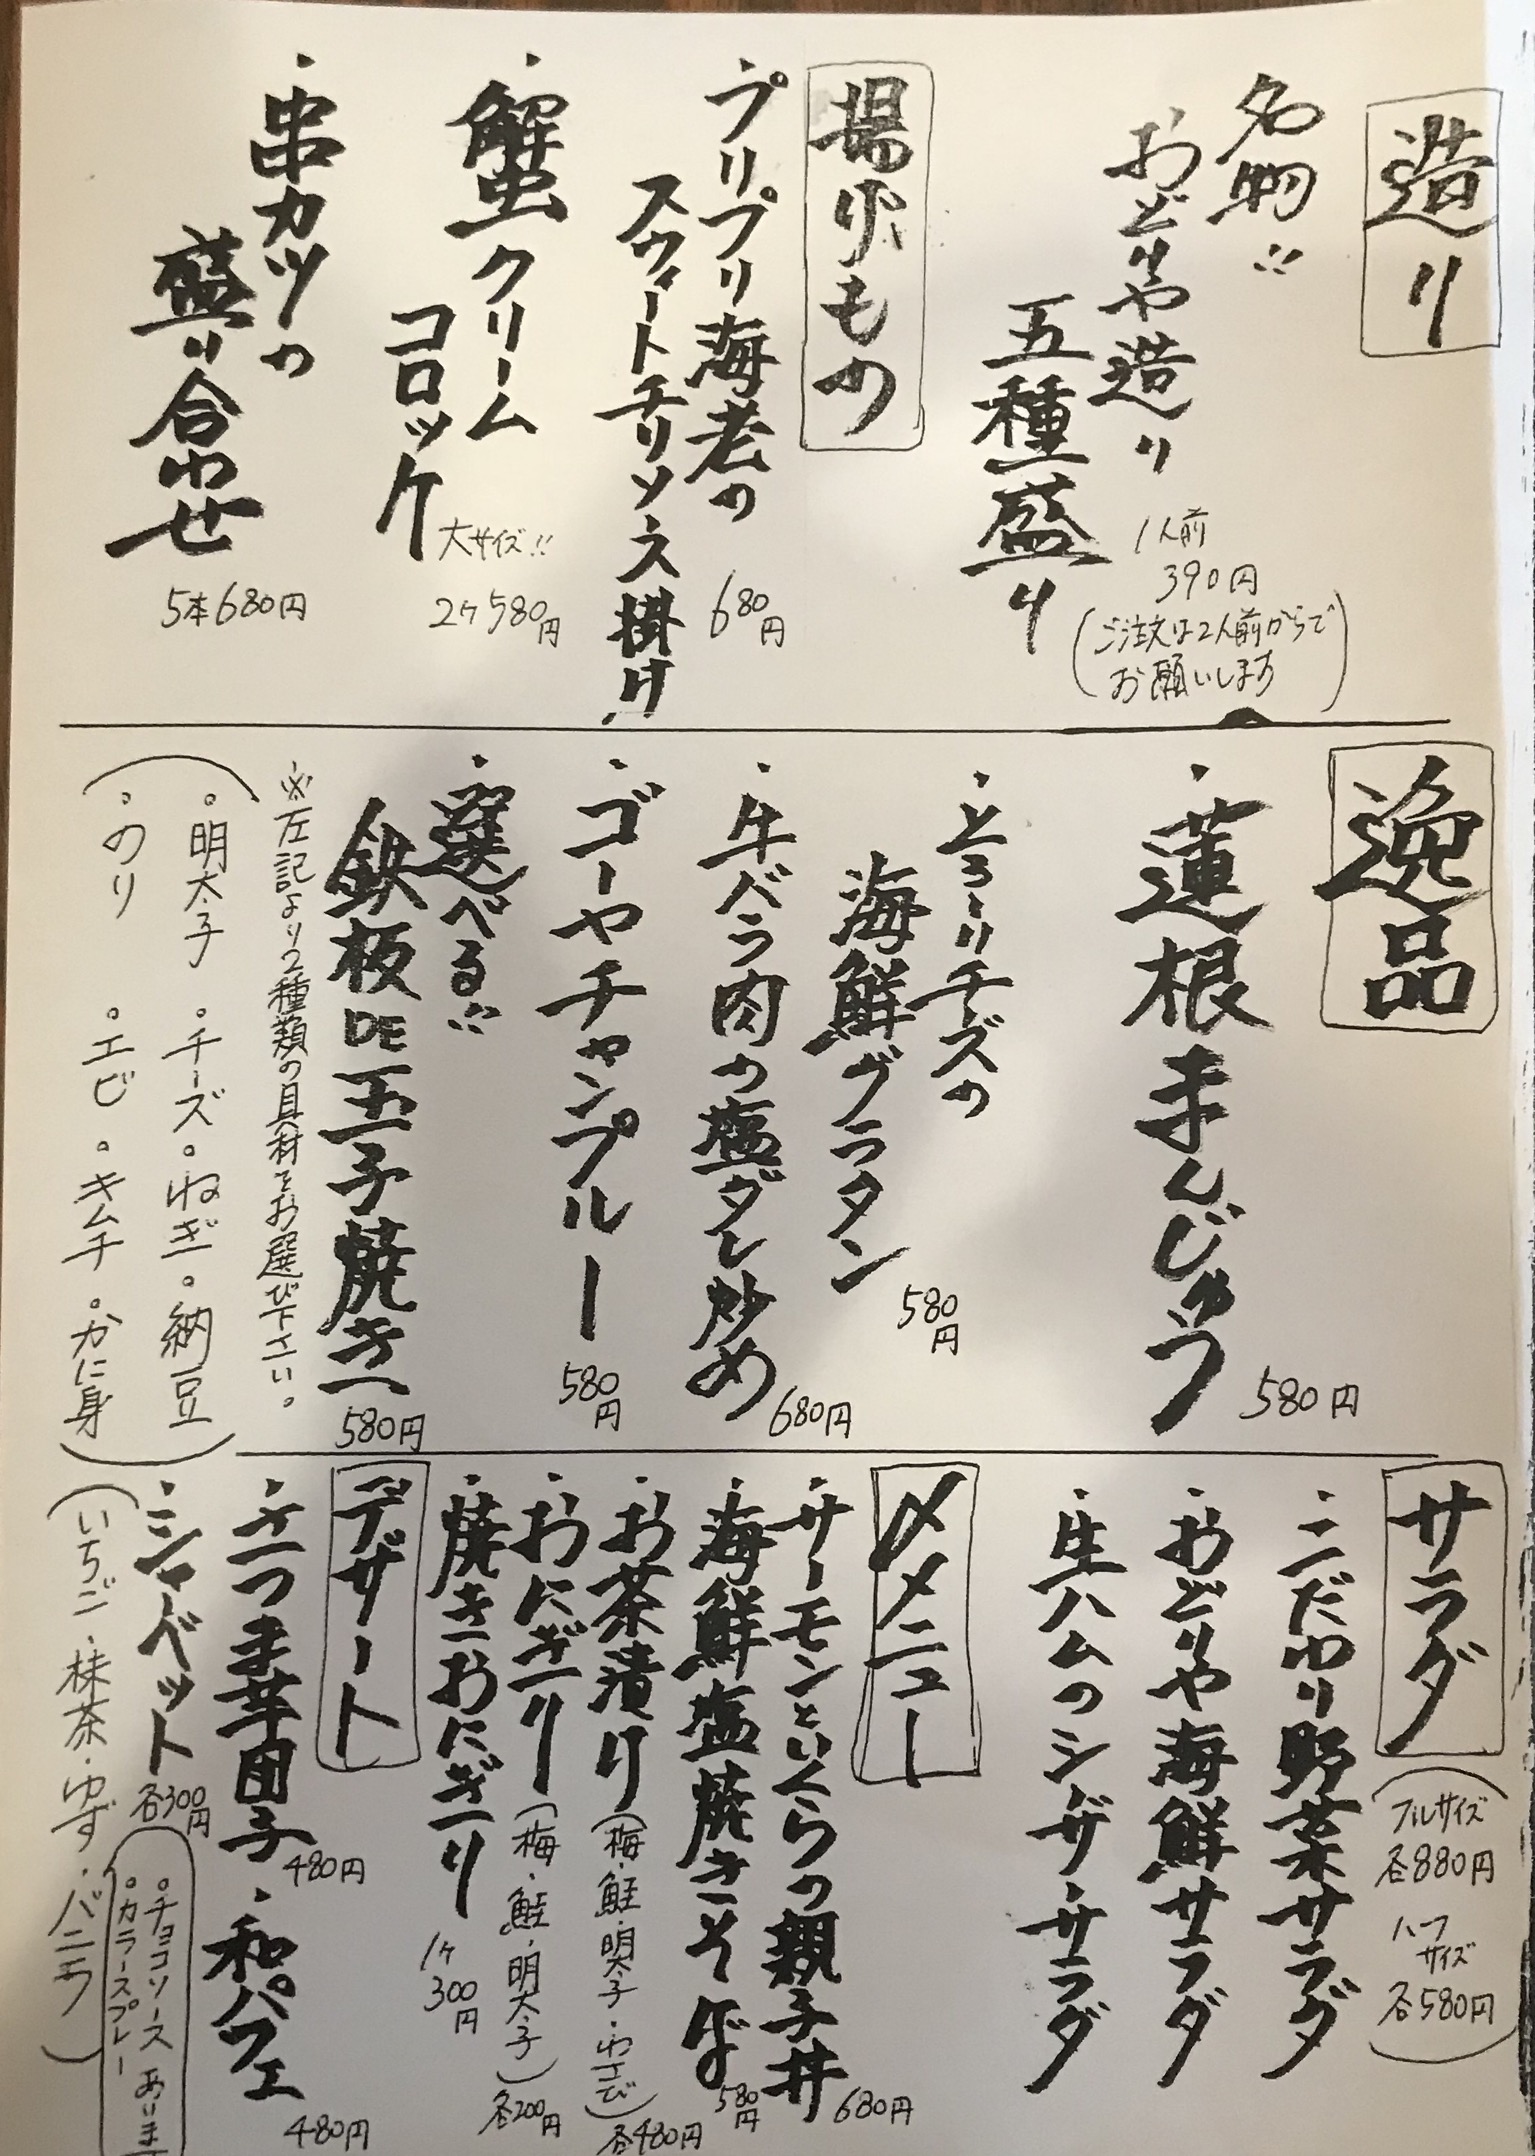 造り
名物!!
おどりや造り
五種盛り
1人前
390円
(ご注文は2人前からで
お願いします)
揚げもの
・プリプリ海老の
スウィートチリソース掛け
680円
・蟹クリーム
コロッケ
大サイズ!!
2ヶ580円
・串カツの
盛り合わせ
5本680円
逸品
・蓮根まんじゅう
580円
・とろーりチーズの
海鮮グラタン
580円
・牛バラ肉の塩ダレ炒め
680円
・ゴーヤチャンプルー
580円
・選べる!!
鉄板DE玉子焼き
580円
※左記より2種類の具材をお選び下さい。
(。明太子 。チーズ 。ねぎ 。納豆
。のり 。エビ 。キムチ 。かに身)
サラダ
(フルサイズ
各880円
ハーフ
サイズ
各580円)
・こだわり野菜サラダ
・おどりや海鮮サラダ
・生ハムのシーザーサラダ
〆メニュー
・サーモンといくらの親子丼
680円
・海鮮塩焼きそば
580円
・お茶漬け(梅・鮭・明太子・わエび)
各480円
・おにぎり(梅・鮭・明太子)
各200円
・焼きおにぎり
1ヶ
300円
デザート
・さつま芋団子
480円
・和パフェ
480円
・シャーベット
各300円
(いちご・抹茶・ゆず・バニラ)
。チョコソース
。カラースプレー
あります